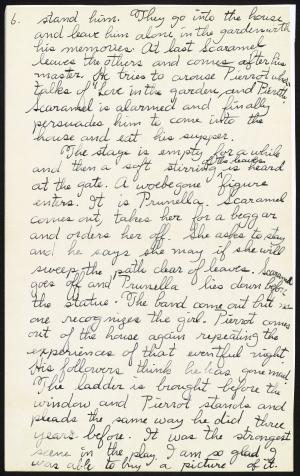 6. stand him. They go into the house
and leave him alone in the garden with
his memories. At last Scaramel
leaves the others and comes after his
master. He tries to arouse Pierrot who
talks of "Love in the garden, and Pierette,
Scaramel is alarmed and finally
persuades him to come into the
house and eat his supper.
The stage is empty for a while
and then a soft stirring of the leaves is heard
at the gate. A woebegone figure
enters. It is Prunella. Scaramel
comes out, takes her for a beggar
and orders her off. She asks to stay
and he says she may if she will
sweep the path clear of leaves. Scaramel
goes off and Prunella lies down before
the statue. The band come out but no
one recognizes the girl. Pierrot comes
out of the house again repeating the
experiences of that eventful night.
His followers think he has gone mad.
The ladder is brought before the
window and Pierrot stands and
pleads the same way he did three
years before. It was the strongest
scene in the play. I am so glad I
was able to buy a picture of it.